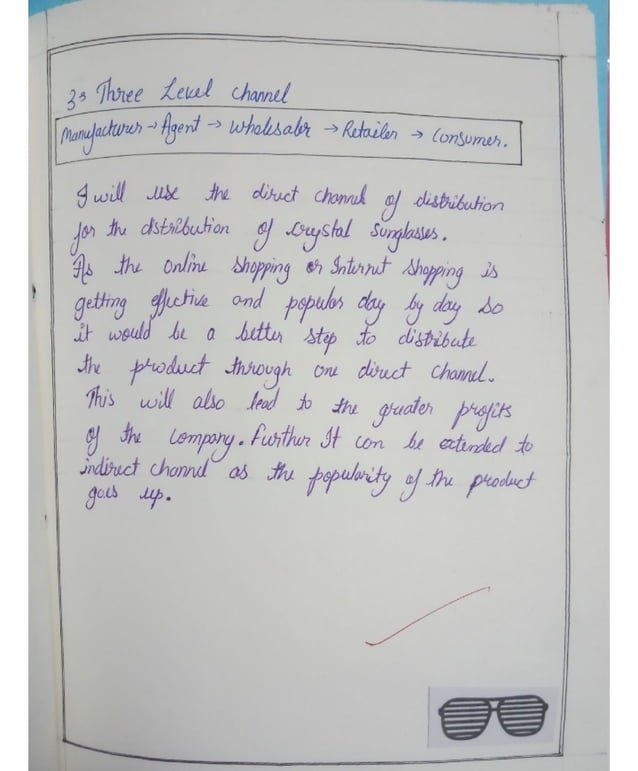 3→ Three Level channel
Manufacturer → Agent → Wholesaler → Retailer → Consumer.
I will use the direct channel of distribution
for the distribution of Crystal Sunglasses.
As the online shopping or Internet shopping is
getting effective and popular day by day so
it would be a better step to distribute
the product through one direct channel.
This will also lead to the greater profits
of the company. Further It can be extended to
indirect channel as the popularity of the product
goes up.